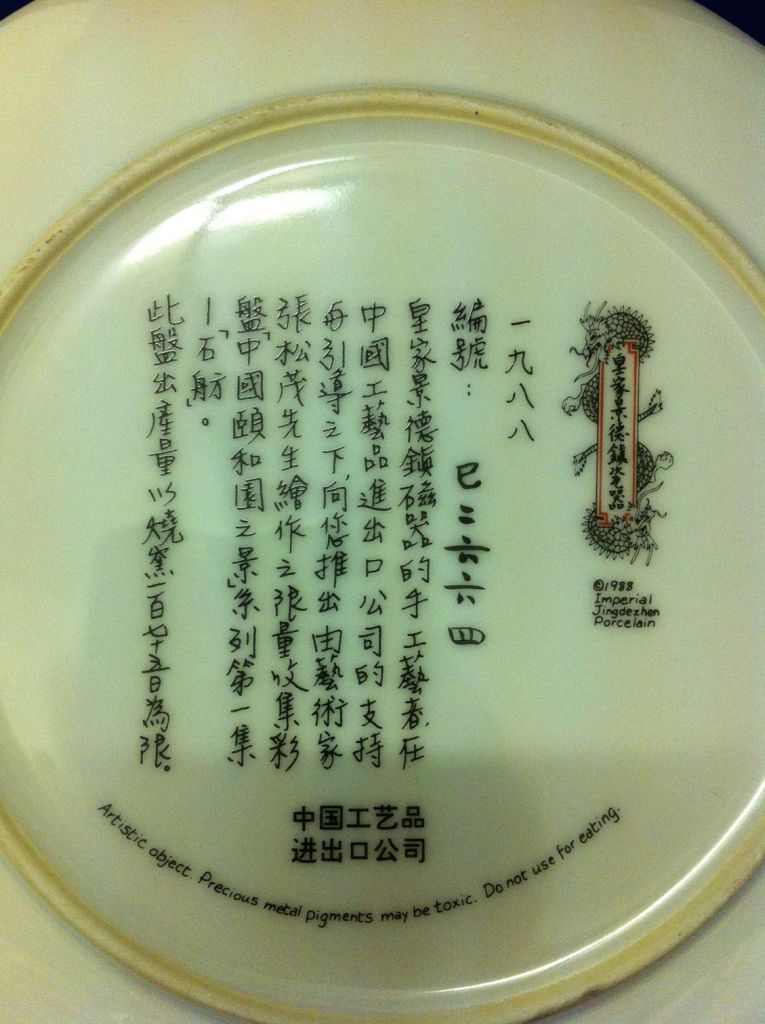 皇家景德鎮瓷器
©1988
Imperial
Jingdezhen
Porcelain
一九八八
編號：巳二六六四
皇家景德鎮磁器的手工藝者，在
中國工藝品進出口公司的支持
再引導之下，向您推出由藝術家
張松茂先生繪作之限量收集彩
盤「中國頤和園之景」系列第一集
—「石舫」。
此盤出產量以燒窯一百七十五日為限。
中国工艺品
进出口公司
Artistic object. Precious metal pigments may be toxic. Do not use for eating.